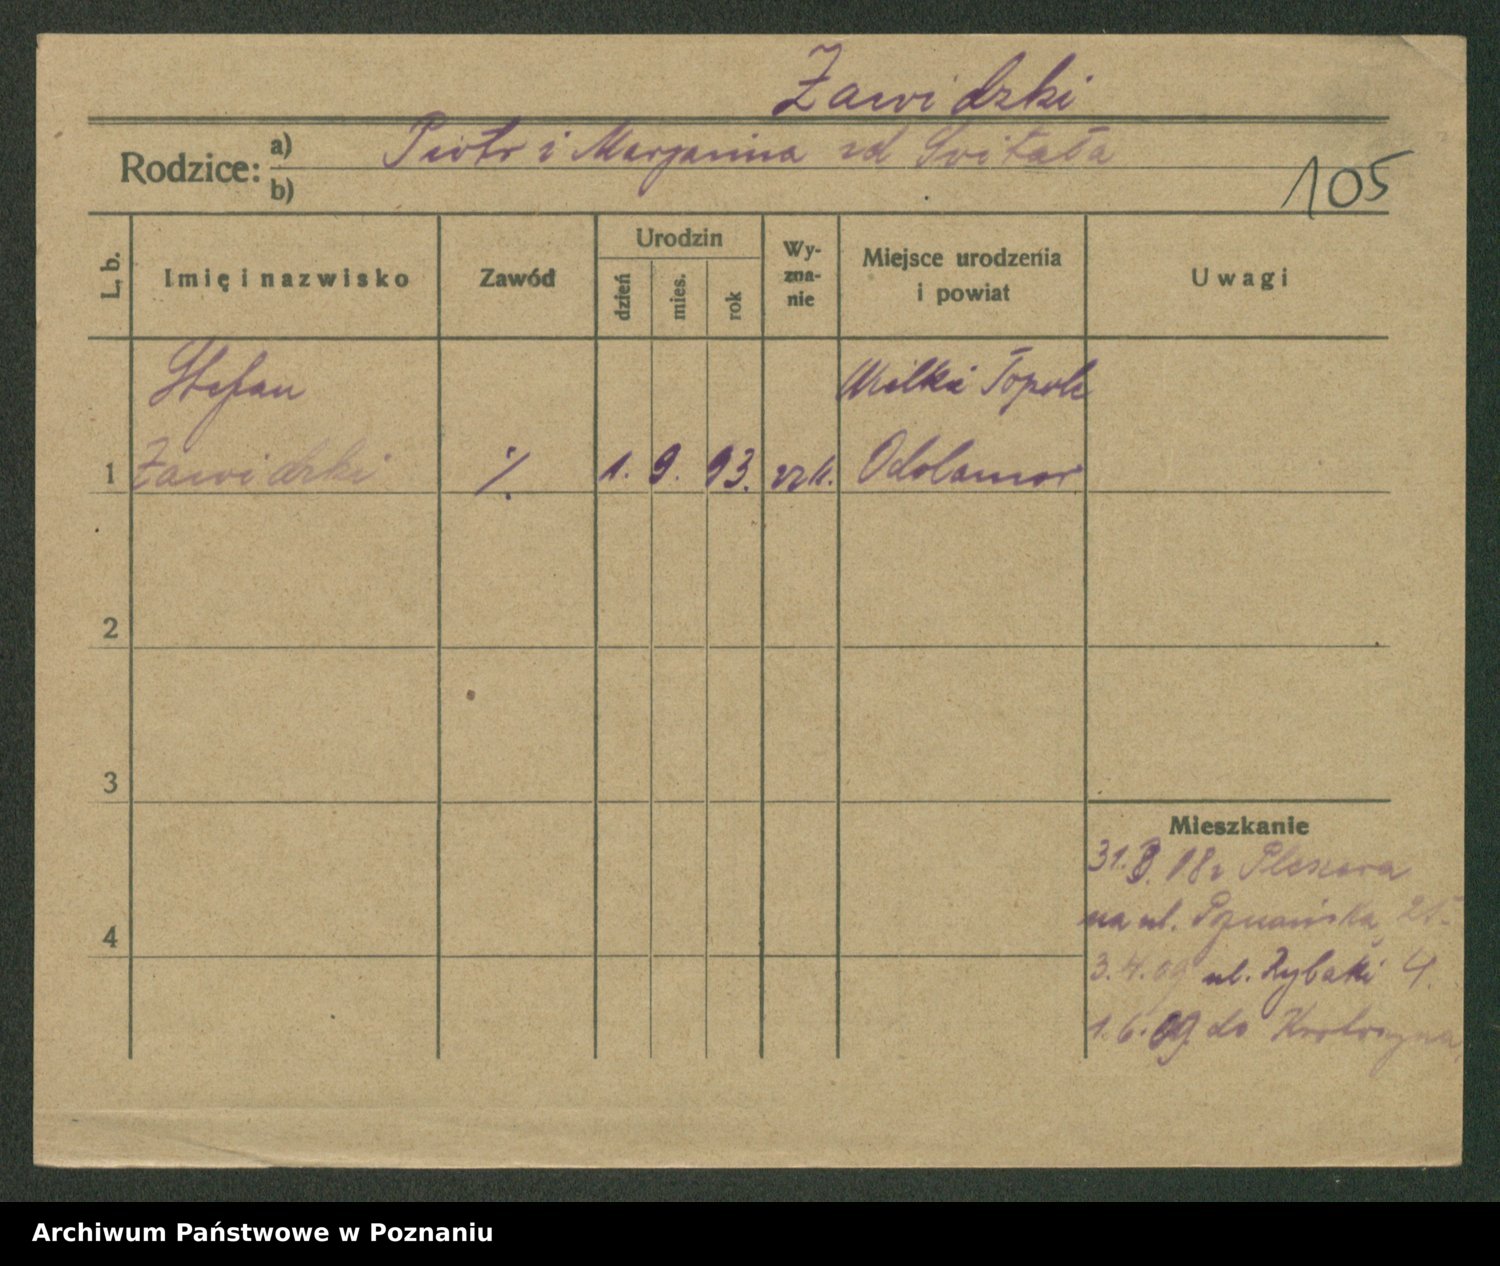 Zawidzki
Rodzice: a) Piotr i Marjanna zd Svitała
b)
105
L. b.
Imię i nazwisko
Zawód
Urodzin
dzień
mies.
rok
Wy-
zna-
nie
Miejsce urodzenia
i powiat
Uwagi
Stefan
Wielkie Topole
1 Zawidzki ./. 1. 9. 93. rzk. Odolanow
2
3
4
Mieszkanie
31. 8. 08r Pleszewa
na ul. Poznańska 21.
3. 4. 09 ul. Rybaki 4.
1. 6. 09 do Krotoszyna
Archiwum Państwowe w Poznaniu